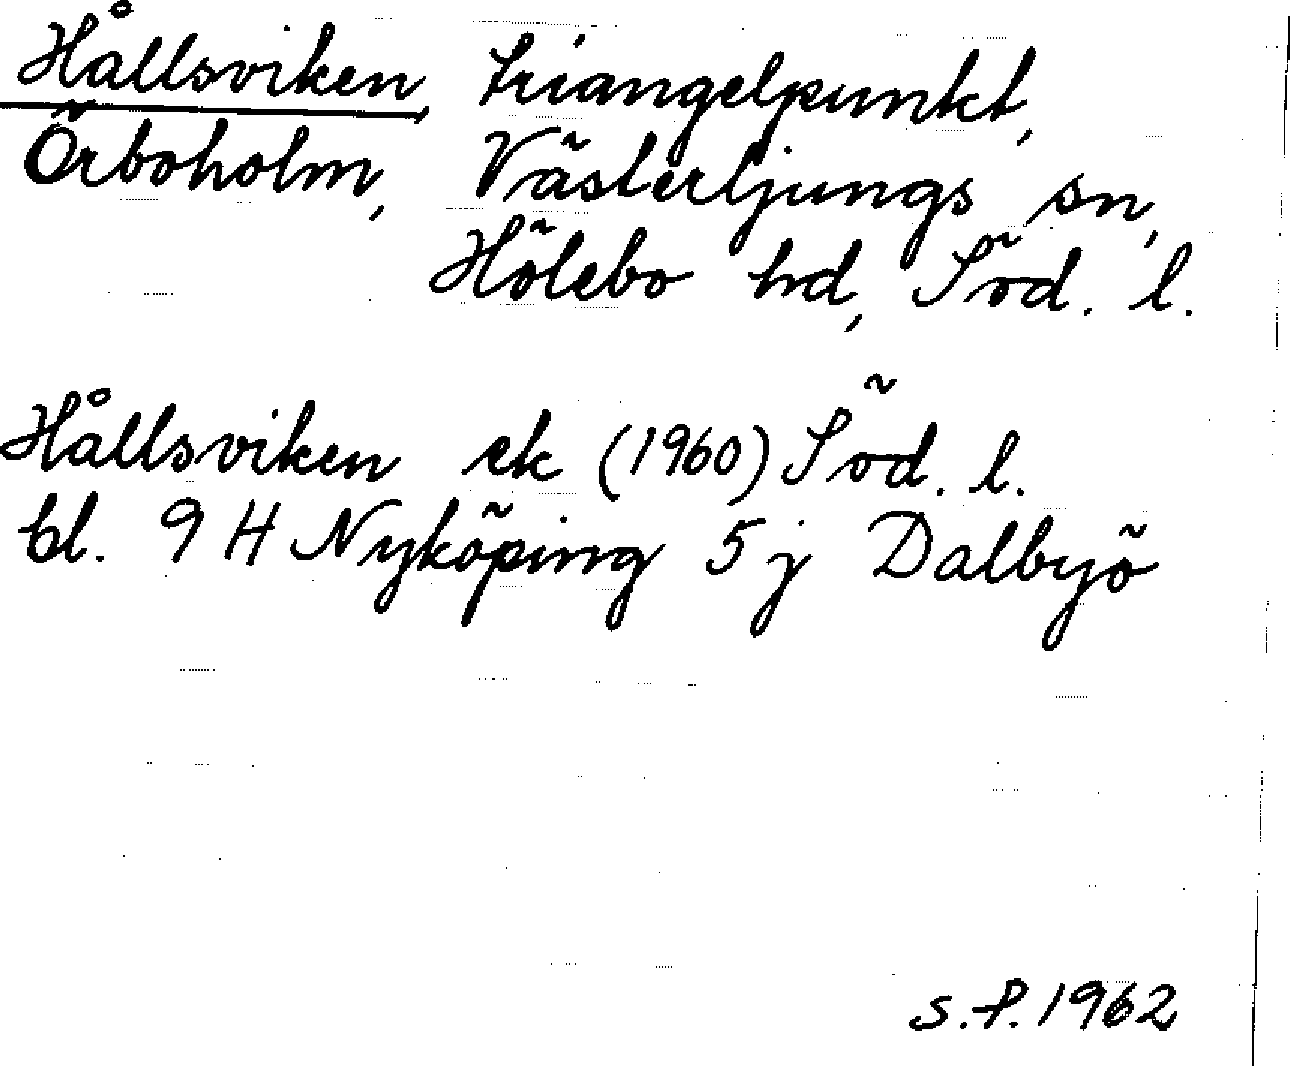 Hållsviken, triangelpunkt,
Örboholm, Västerljungs sn,
Hölebo hd, Söd. l.
Hållsviken ek (1960) Söd. l.
bl. 9 H Nyköping 5 j Dalbyö
S.P. 1962